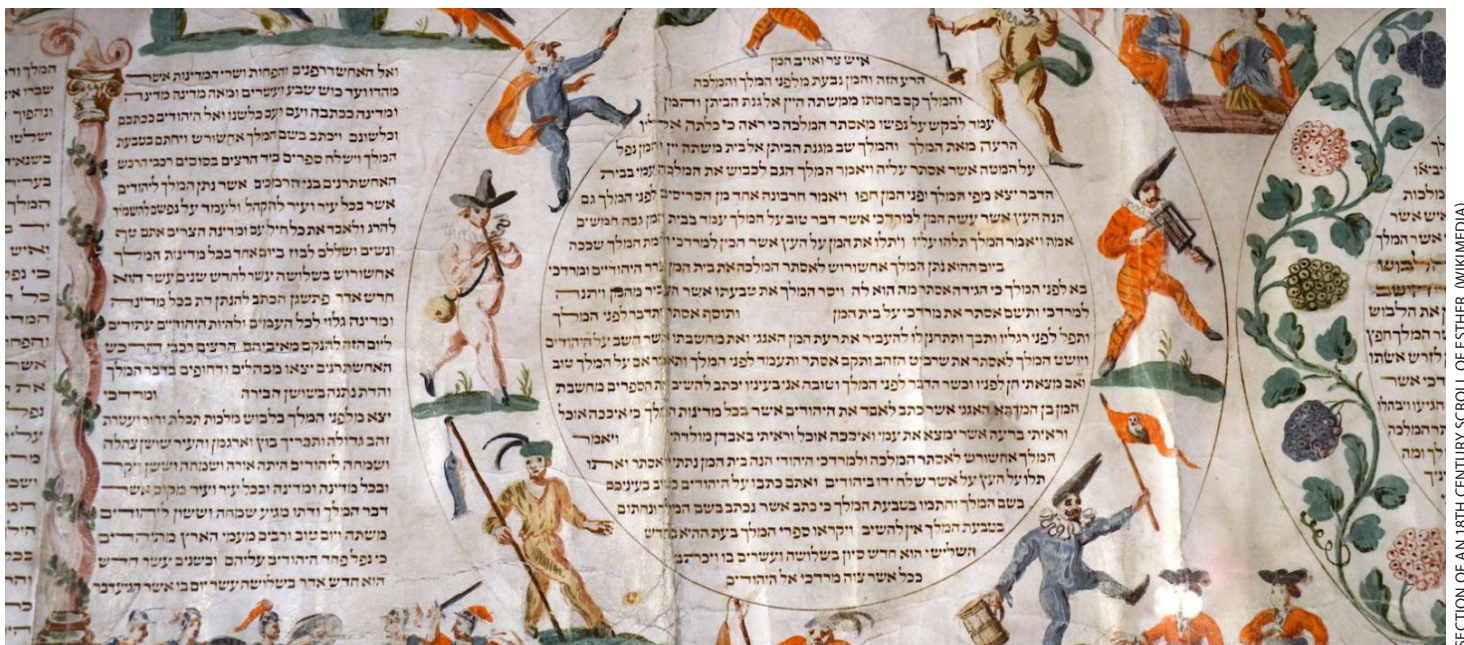 איש צר ואויב המן
הרע הזה והמן נבעת מלפני המלך והמלכה
והמלך קם בחמתו ממשתה היין אל גנת הביתן והמן
עמד לבקש על נפשו מאסתר המלכה כי ראה כי כלתה
הרעה מאת המלך והמלך שב מגנת הביתן אל בית משתה והמן נפל
על המטה אשר אסתר עליה ויאמר המלך הגם לכבוש את המלכה עמי בבית
הדבר יצא מפי המלך ופני המן חפו ויאמר חרבונה אחד מן הסריסים לפני המלך גם
הנה העץ אשר עשה המן למרדכי אשר דבר טוב על המלך עמד בבית המן גבה חמשים
אמה ויאמר המלך תלהו עליו ויתלו את המן על העץ אשר הכין למרדכי וחמת המלך שככה
ביום ההוא נתן המלך אחשורוש לאסתר המלכה את בית המן צרר היהודיים ומרדכי
בא לפני המלך כי הגידה אסתר מה הוא לה ויסר המלך את טבעתו אשר העביר מהמן ויתנה
למרדכי ותשם אסתר את מרדכי על בית המן ותוסף אסתר ותדבר לפני המלך
ותפל לפני רגליו ותבך ותתחנן לו להעביר את רעת המן האגגי ואת מחשבתו אשר חשב על היהודים
ויושט המלך לאסתר את שרבט הזהב ותקם אסתר ותעמד לפני המלך ותאמר אם על המלך טוב
ואם מצאתי חן לפניו וכשר הדבר לפני המלך וטובה אני בעיניו יכתב להשיב את הספרים מחשבת
המן בן המדתא האגגי אשר כתב לאבד את היהודים אשר בכל מדינות המלך כי איככה אוכל
וראיתי ברעה אשר ימצא את עמי ואיככה אוכל וראיתי באבדן מולדתי ויאמר
המלך אחשורש לאסתר המלכה ולמרדכי היהודי הנה בית המן נתתי לאסתר ואתו
תלו על העץ על אשר שלח ידו ביהודים ואתם כתבו על היהודים כטוב בעיניכם
בשם המלך וחתמו בטבעת המלך כי כתב אשר נכתב בשם המלך ונחתום
בטבעת המלך אין להשיב ויקראו ספרי המלך בעת ההיא בחדש
השלישי הוא חדש סיון בשלושה ועשרים בו ויכתב
ככל אשר צוה מרדכי אל היהודים
ואל האחשדרפנים והפחות ושרי המדינות אשר
מהדו ועד כוש שבע ועשרים ומאה מדינה מדינה
ומדינה ככתבה ועם ועם כלשנו ואל היהודים ככתבם
וכלשונם ויכתב בשם המלך אחשורש ויחתם בטבעת
המלך וישלח ספרים ביד הרצים בסוסים רכבי הרכש
האחשתרנים בני הרמכים אשר נתן המלך ליהודים
אשר בכל עיר ועיר להקהל ולעמד על נפשם להשמיד
להרג ולאבד את כל חיל עם ומדינה הצרים אתם טף
ונשים ושללם לבוז ביום אחד בכל מדינות המלך
אחשורוש בשלושה עשר לחדש שנים עשר הוא
חדש אדר פתשגן הכתב להנתן דת בכל מדינה
ומדינה גלוי לכל העמים ולהיות היהודים עתודים
ליום הזה להנקם מאיביהם הרצים רכבי הרכש
האחשתרנים יצאו מבהלים ודחופים בדבר המלך
והדת נתנה בשושן הבירה ומרדכי
יצא מלפני המלך בלבוש מלכות תכלת וחור ועטרת
זהב גדולה ותכריך בוץ וארגמן והעיר שושן צהלה
ושמחה ליהודים היתה אורה ושמחה וששן ויקר
ובכל מדינה ומדינה ובכל עיר ועיר מקום אשר
דבר המלך ודתו מגיע שמחה וששון ליהודים
משתה ויום טוב ורבים מעמי הארץ מתיהדים
כי נפל פחד היהודים עליהם ובשנים עשר חדש
הוא חדש אדר בשלושה עשר יום בו אשר הגיע דבר
SECTION OF AN 18TH CENTURY SCROLL OF ESTHER (WIKIMEDIA)